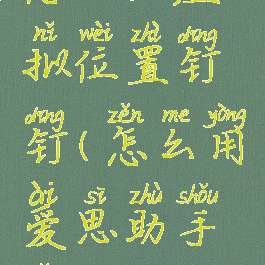 nǐ wèi zhì dīng
拟位置钉
dīng zěn me yòng
钉(怎么用
ài sī zhù shǒu
爱思助手